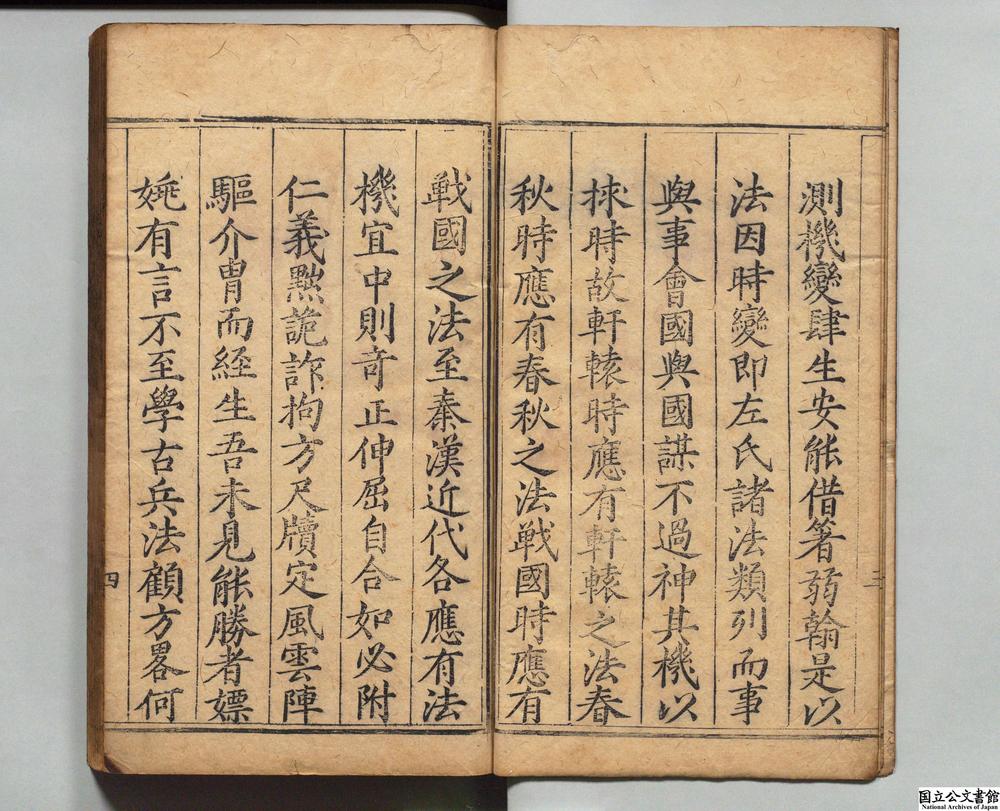 測機變肆生安能借箸弱翰是以
法因時變即左氏諸法類列而事
與事會國與國謀不過神其機以
捄時故軒轅時應有軒轅之法春
秋時應有春秋之法戦國時應有
三
戦國之法至秦漢近代各應有法
機宜中則竒正伸屈自合如必附
仁義㸃詭詐拘方尺牘定風雲陣
驅介冑而経生吾未見能勝者嫖
姚有言不至學古兵法顧方畧何
四
国立公文書館
National Archives of Japan